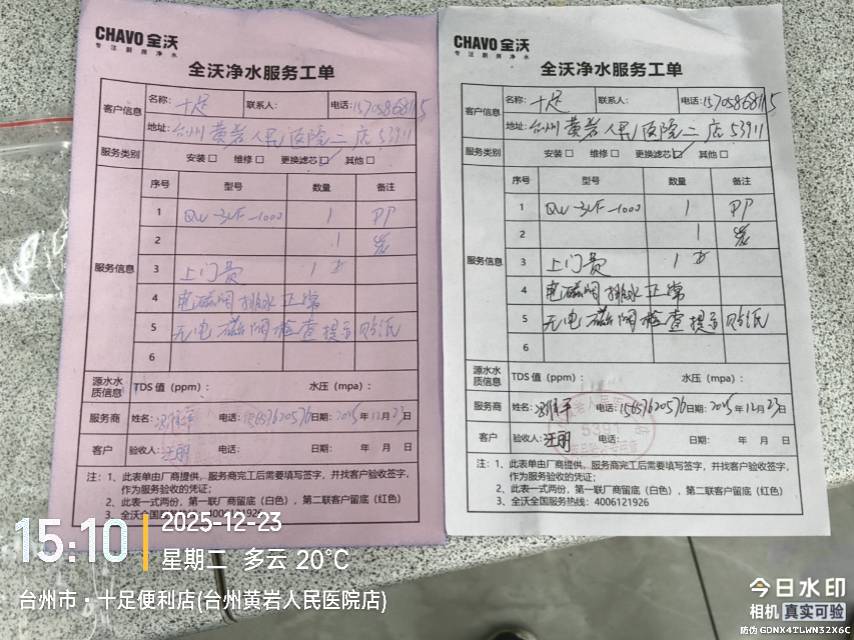 CHAVO 全沃
专注厨房净水
全沃净水服务工单
客户信息
名称: 十足
联系人:
电话: 15705868115
地址: 台州黄岩人民医院二店 53911
服务类别
安装 □ 维修 □ 更换滤芯 ☑ 其他 □
服务信息
序号 型号 数量 备注
1 QW-3UF-1000 1 PP
2 1 炭
3 上门费 1 次
4 电磁阀排水正常
5 无电磁阀检查提示贴纸
6
源水水质信息
TDS 值 (ppm): 水压 (mpa):
服务商
姓名: 电话: 15657620576 日期: 2025 年 12 月 23 日
客户
验收人: 汪明 电话: 日期: 年 月 日
注: 1、此表单由厂商提供,服务商完工后需要填写签字,并找客户验收签字,
作为服务验收的凭证;
2、此表一式两份,第一联厂商留底(白色),第二联客户留底(红色)
3、全沃全国
4006121926
CHAVO 全沃
专注厨房净水
全沃净水服务工单
客户信息
名称: 十足
联系人:
电话: 15705868115
地址: 台州黄岩人民医院二店 53911
服务类别
安装 □ 维修 □ 更换滤芯 ☑ 其他 □
服务信息
序号 型号 数量 备注
1 QW-3UF-1000 1 PP
2 1 炭
3 上门费 1 次
4 电磁阀排水正常
5 无电磁阀检查提示贴纸
6
源水水质信息
TDS 值 (ppm): 水压 (mpa):
服务商
姓名: 电话: 15657620576 日期: 2025 年 12 月 23 日
5391
客户
验收人: 汪明 电话: 日期: 年 月 日
注: 1、此表单由厂商提供,服务商完工后需要填写签字,并找客户验收签字,
作为服务验收的凭证;
2、此表一式两份,第一联厂商留底(白色),第二联客户留底(红色)
3、全沃全国服务热线: 4006121926
15:10
2025-12-23
星期二 多云 20°C
台州市·十足便利店(台州黄岩人民医院店)
今日水印
相机 真实可验
防伪 GDNX4TLWN32X6C